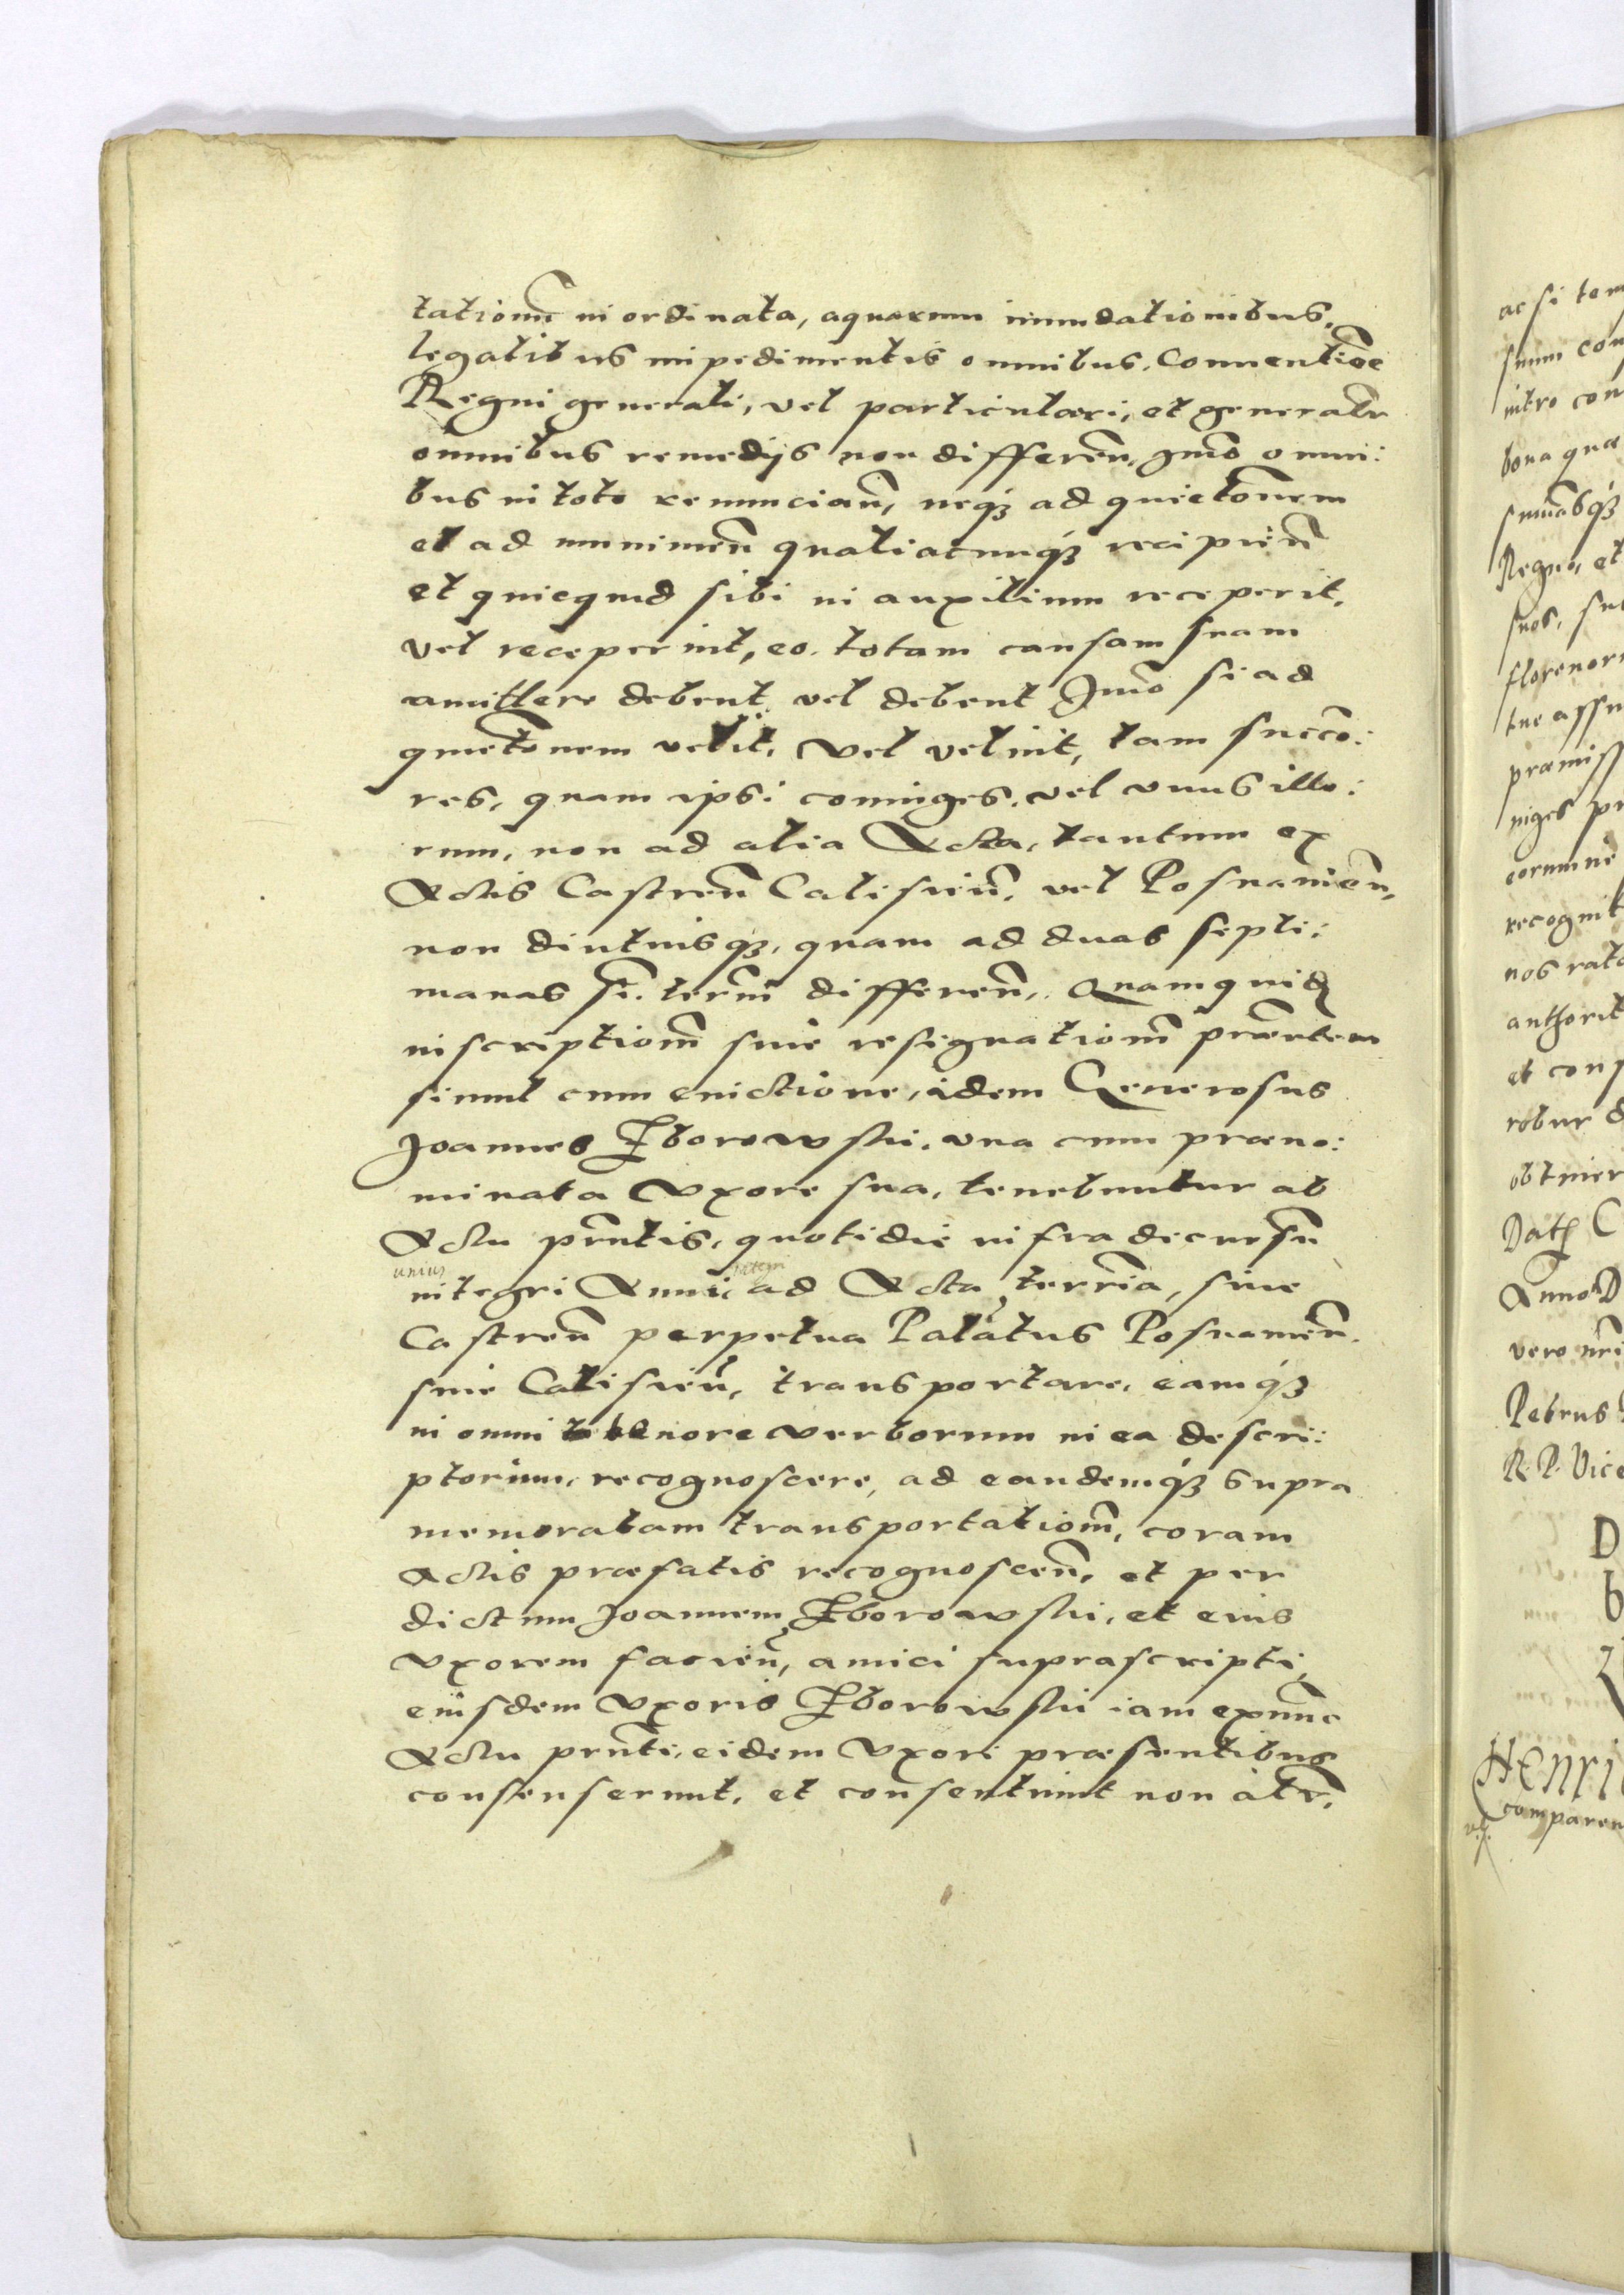 tationẽ inordinata, aquarum inundationibus,
legalibus impedimentis omnibus, Conuentiõe
Regni generali, vel particulari, et generalr̃
omnibus remedijs non differeñ, Imõ omni:
bus in toto renunciañ, neqꝫ ad quietoñem
et ad munimeñ qualiacunqꝫ recipieñ
et quicquid sibi in auxilium receperit,
vel receperint, eo. totam causam suam
amittere debent vel debent Imõ si ad
quietoñem velit, vel velint, tam succõ:
res, quam ipsi coniuges, vel vnus illo:
rum, non ad alia Acta, tantum ex
Actis Castreñ Calisieñ, vel Posnanieñ,
non diutiusqꝫ, quam ad duas septi:
manas fi. term̃ differeñ. Quam quid
inscriptionẽ siue resignationẽ præñtem
simul cum euictione, idem Generosus
Joannes Zborowski, vna cum præno:
minata Vxore sua, tenebuntur ab
Actu præñtis, quotidie infra decursũ
unius
integri Anni, ad Acta terr̃ia, siue
Castreñ perpetua Palãtus Posnanieñ.
siue Calisieñ, transportare, eamqꝫ
in omni tenore verborum in ea descri:
ptorum, recognoscere, ad eandemqꝫ supra
memoratam transportationẽ, coram
Actis præfatis recognosceñ, et per
dictum Joannem Zborowski, et eius
Vxorem facieñ, amici suprascripti,
eiusdem Vxoris Zborowski iam exnunc
Actu præñti, eidem Vxori præsentibus
consenserunt, et consentiunt non alr̃.
ac si tem
suum con
intro con
bona quæ
Regno, et
suos, su
florenor
præmiss
niges pr
eorum ne
recognit
nos rat
authorit
et cons
robur d
obtiner
Dat C
Anno D
vero nr̃i
Petrus
R. P. Vice
D
b
Henri
comparen